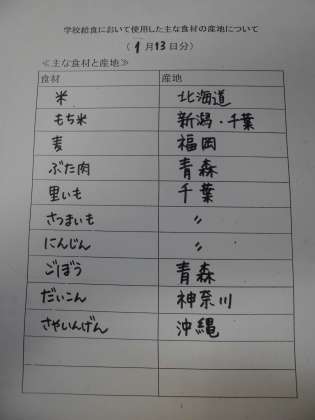 学校給食において使用した主な食材の産地について
(1月13日分)
≪主な食材と産地≫
食材 産地
米 北海道
もち米 新潟・千葉
麦 福岡
ぶた肉 青森
里いも 千葉
さつまいも 〃
にんじん 〃
ごぼう 青森
だいこん 神奈川
さやいんげん 沖縄